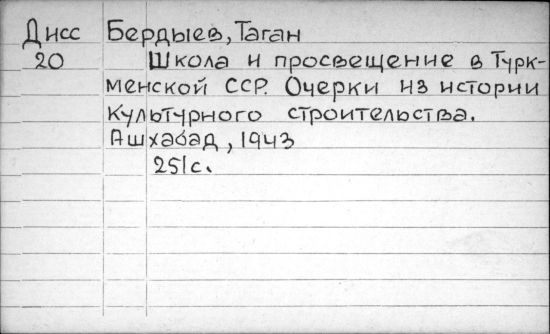 Дисс Бердыев, Таган
20 Школа и просвещение в Турк-
менской ССР. Очерки из истории
культурного строительства.
Ашхабад, 1943
251с.